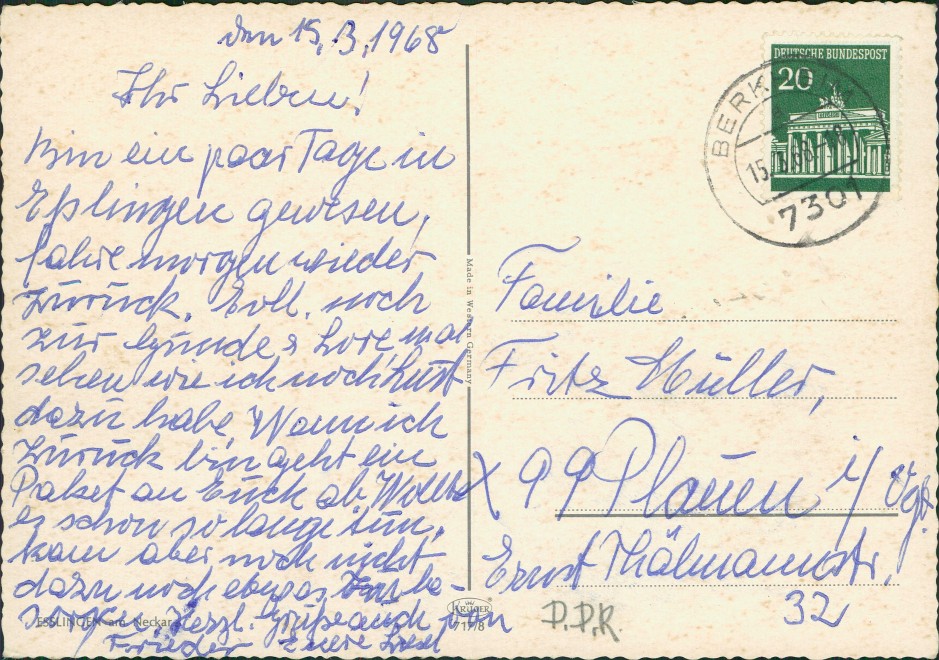 den 15.3.1968
Ihr Lieben!
Bin ein paar Tage in
Eßlingen gewesen,
fahre morgen wieder
zurück. Evll. noch
zur Gunde & Lore, mal
sehen wie ich noch Lust
dazu habe, Wenn ich
zurück bin geht ein
Paket an Euch ab, Wollte
es schon so lange tun,
kam aber noch nicht
dazu noch etwas zu be-
sorgen. Herzl. Grüße auch von
Frieder Euere Liesel
ESSLINGEN am Neckar
Made in Western Germany
KRÜGER
717/8
DEUTSCHE BUNDESPOST
20
BERKHEIM
15.3.68
7301
Familie
Fritz Müller,
x 99 Plauen i/Vgt.
Ernst Thälmannstr.
32
D.D.R